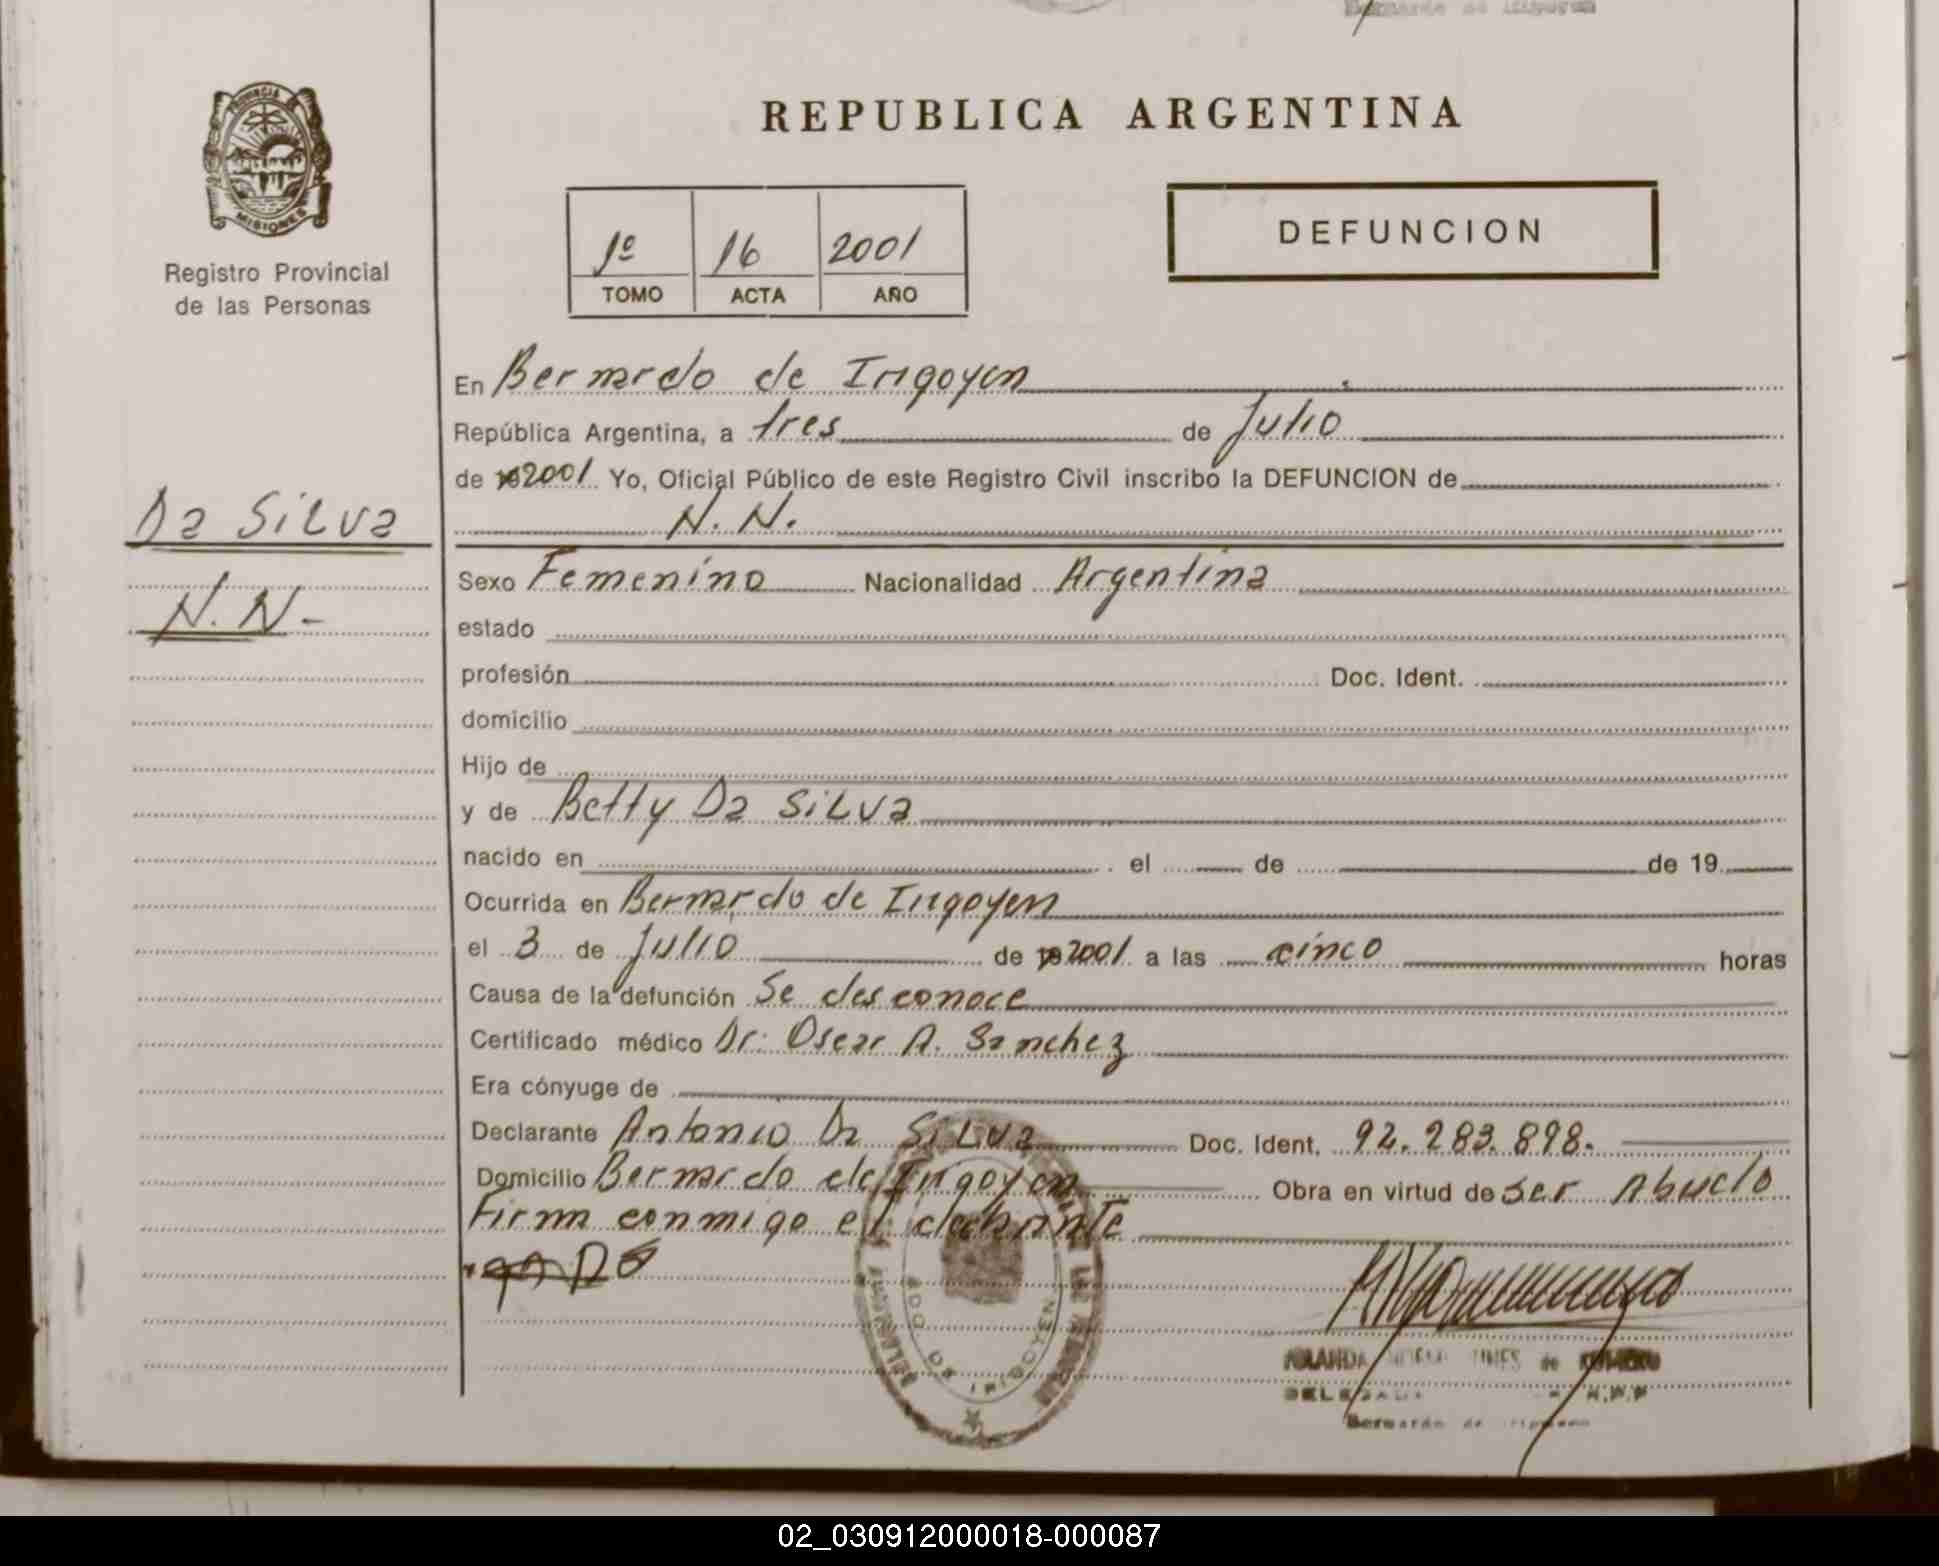 Bernardo de Irigoyen
REPUBLICA ARGENTINA
PROVINCIA
MISIONES
Registro Provincial
de las Personas
1º 16 2001
TOMO ACTA AÑO
DEFUNCION
En Bernardo de Irigoyen
República Argentina, a tres de Julio
de 2001 Yo, Oficial Público de este Registro Civil inscribo la DEFUNCION de
N. N.
Da Silva
N. N.-
Sexo Femenino Nacionalidad Argentina
estado
profesión Doc. Ident.
domicilio
Hijo de
y de Betty Da Silva
nacido en el de de 19
Ocurrida en Bernardo de Irigoyen
el 3 de Julio de 2001 a las cinco horas
Causa de la defunción Se desconoce
Certificado médico Dr. Oscar A. Sanchez
Era cónyuge de
Declarante Antonio Da Silva Doc. Ident. 92.283.898.
Domicilio Bernardo de Irigoyen Obra en virtud de ser Abuelo
Firma conmigo el
BDO DE IRIGOYEN
YOLANDA de
DELEGADA R.P.P
Bernardo de Irigoyen
02_030912000018-000087